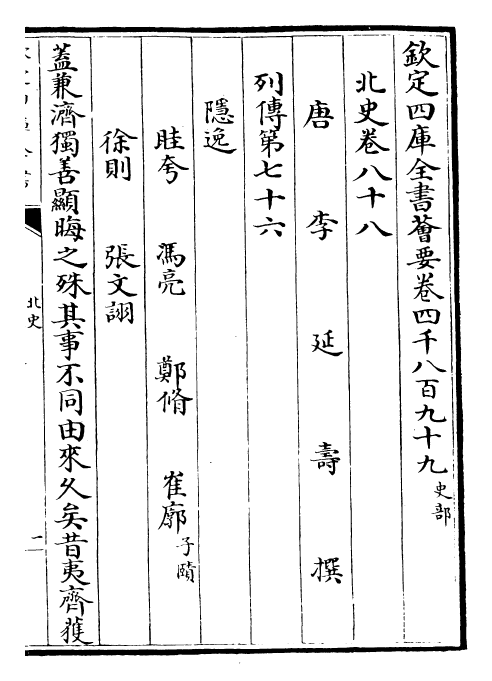 欽定四庫全書薈要卷四千八百九十九 史部
北史卷八十八
唐 李 延 壽 撰
列傳第七十六
隱逸
眭夸 馮亮 鄭脩 崔廓 子賾
徐則 張文詡
蓋兼濟獨善顯晦之殊其事不同由來久矣昔夷齊獲
北史
二